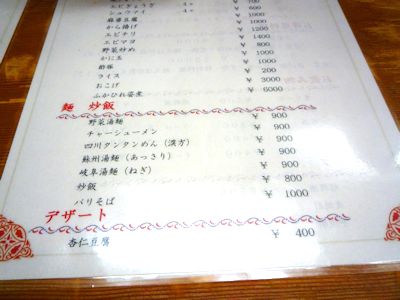 エビぎょうざ 4ヶ ¥ 700
シュウマイ 4ヶ ¥ 600
麻婆豆腐 ¥ 1000
から揚げ ¥ 1000
エビチリ ¥ 1200
エビマヨ ¥ 1400
野菜炒め ¥ 800
かに玉 ¥ 1000
酢豚 ¥ 1000
ライス ¥ 200
おこげ ¥ 3000
ふかひれ姿煮 ¥ 6000
麺 炒飯
野菜湯麺 ¥ 900
チャーシューメン ¥ 900
四川タンタンめん（漢方） ¥ 900
蘇州湯麺（あっさり） ¥ 900
岐阜湯麺（ねぎ） ¥ 900
炒飯 ¥ 800
バリそば ¥ 1000
デザート
杏仁豆腐 ¥ 400